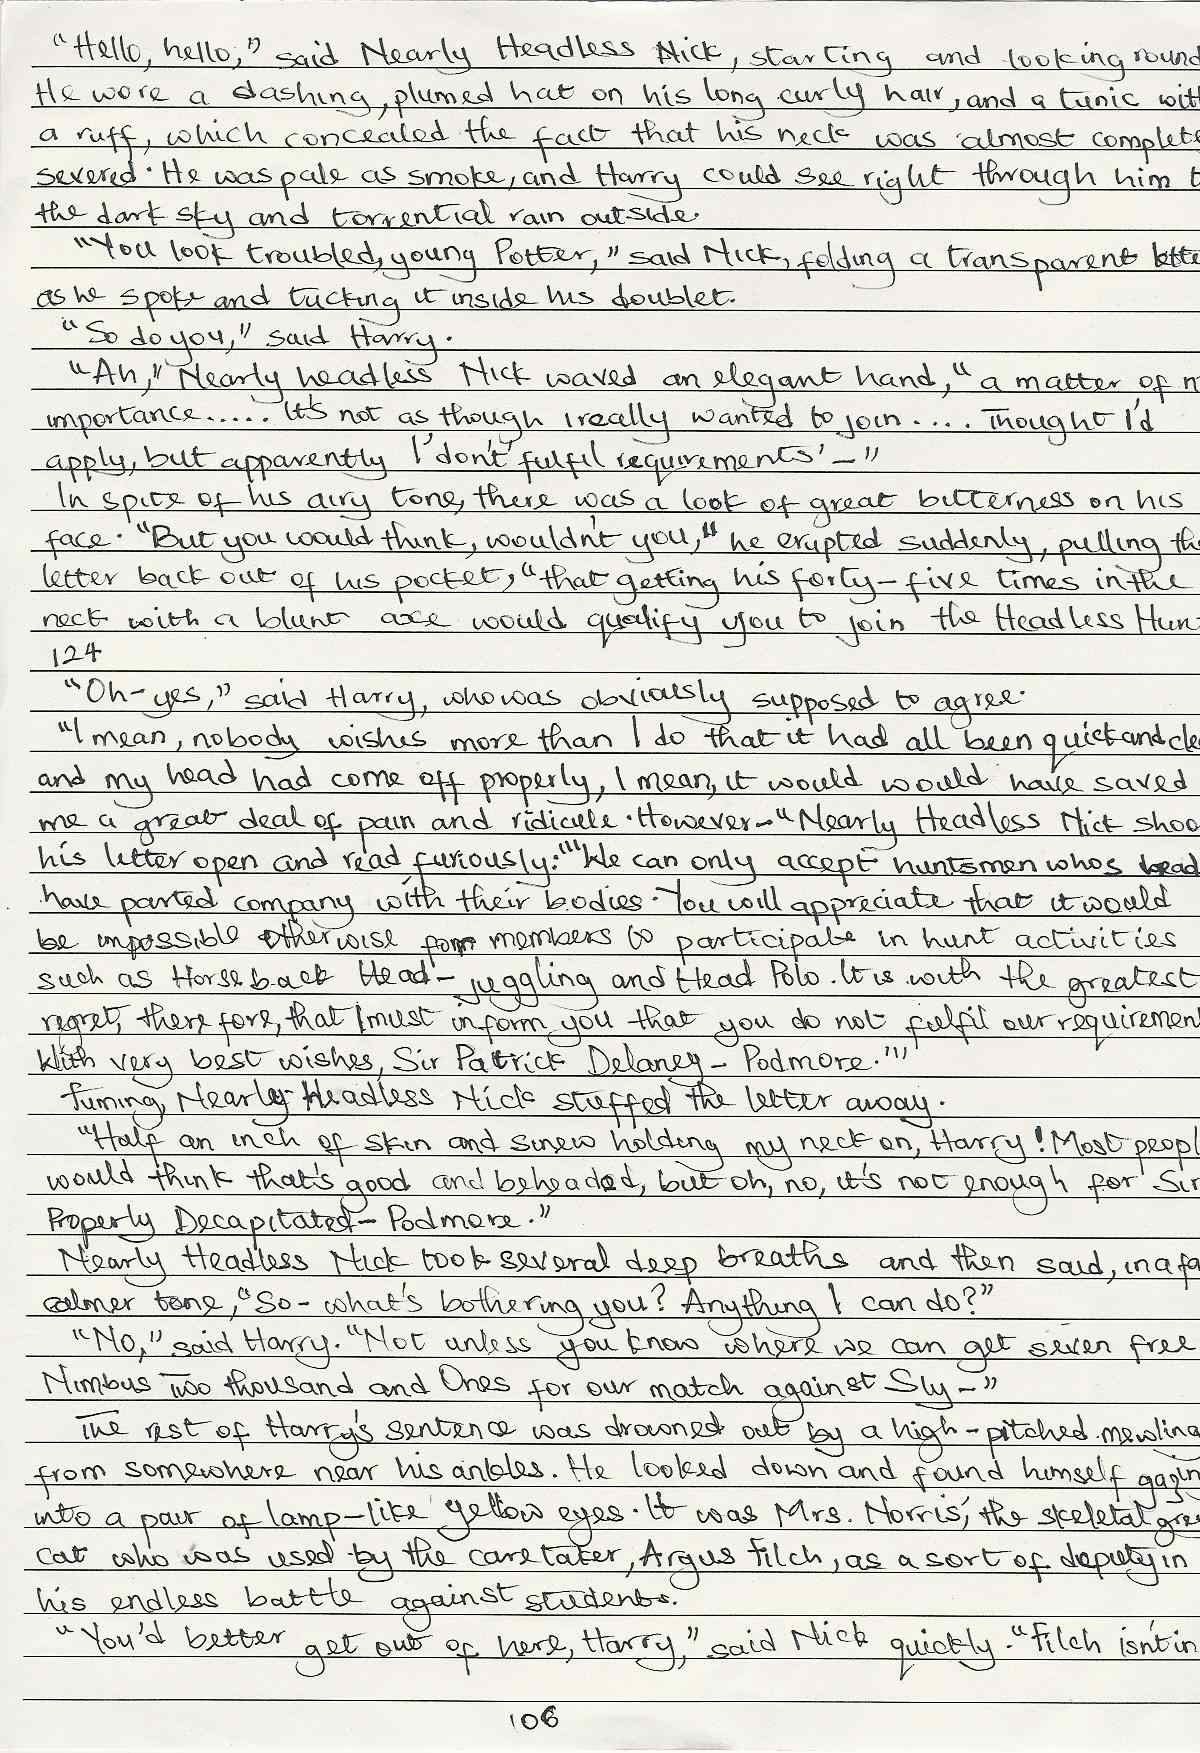 "Hello, hello," said Nearly Headless Nick, starting and looking round
He wore a dashing, plumed hat on his long curly hair, and a tunic with
a ruff, which concealed the fact that his neck was almost complete
severed. He was pale as smoke, and Harry could see right through him t
the dark sky and torrential rain outside.
"You look troubled, young Potter," said Nick, folding a transparent lette
as he spoke and tucking it inside his doublet.
"So do you," said Harry.
"Ah," Nearly headless Nick waved an elegant hand, "a matter of n
importance..... It's not as though I really wanted to join .... Thought I'd
apply, but apparently I 'don't fulfil requirements' -"
In spite of his airy tone, there was a look of great bitterness on his
face. "But you would think, wouldn't you," he erupted suddenly, pulling the
letter back out of his pocket, "that getting his forty-five times in the
neck with a blunt axe would qualify you to join the Headless Hun
124
"Oh-yes," said Harry, who was obviously supposed to agree.
"I mean, nobody wishes more than I do that it had all been quick and cle
and my head had come off properly, I mean, it would would have saved
me a great deal of pain and ridicule. However-" Nearly Headless Nick shoo
his letter open and read furiously: "'We can only accept huntsmen whos head
have parted company with their bodies. You will appreciate that it would
be impossible otherwise members to participate in hunt activities
such as Horseback Head-juggling and Head Polo. It is with the greatest
regret, therefore, that I must inform you that you do not fulfil our requirement
With very best wishes, Sir Patrick Delaney-Podmore.'"
Fuming, Nearly Headless Nick stuffed the letter away.
"Half an inch of skin and sinew holding my neck on, Harry! Most peopl
would think that's good and beheaded, but oh, no, it's not enough for Sir
Properly Decapitated-Podmore."
Nearly Headless Nick took several deep breaths and then said, in a fa
calmer tone, "So- what's bothering you? Anything I can do?"
"No," said Harry. "Not unless you know where we can get seven free
Nimbus Two thousand and Ones for our match against Sly-"
The rest of Harry's sentence was drowned out by a high-pitched mewling
from somewhere near his ankles. He looked down and found himself gazin
into a pair of lamp-like yellow eyes. It was Mrs. Norris, the skeletal gre
cat who was used by the caretaker, Argus Filch, as a sort of deputy in
his endless battle against students.
"You'd better get out of here, Harry," said Nick quickly. "Filch isn't in
106